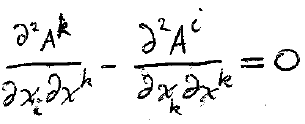 ∂²Aᵏ/∂xᵢ∂xᵏ − ∂²Aⁱ/∂xₖ∂xᵏ = 0